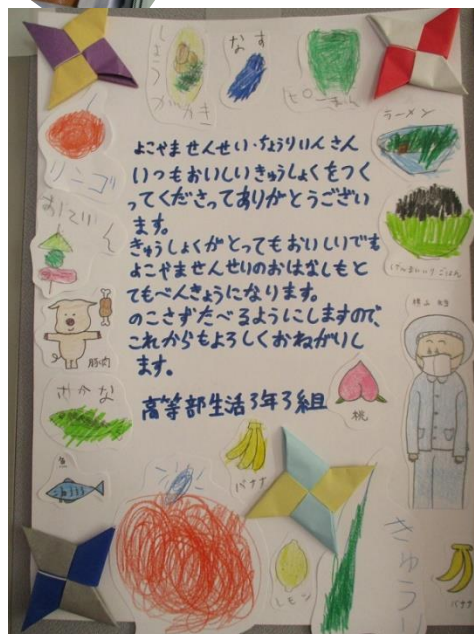 なす
ピーまん
ラーメン
リンゴ
よこやませんせい・ちょうりいんさん
いつもおいしいきゅうしょくをつく
ってくださってありがとうござい
ます。
きゅうしょくがとってもおいしいです
よこやませんせいのおはなしもと
てもべんきょうになります。
のこさずたべるようにしますので、
これからもよろしくおねがいし
ます。
高等部生活3年3組
おでん
豚肉
さかな
魚
桃
バナナ
レモン
きゅうり
バナナ